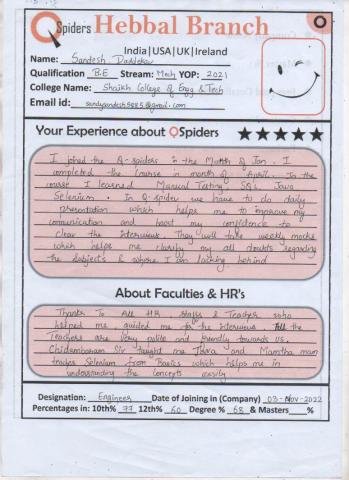 QSpiders Hebbal Branch
India|USA|UK|Ireland
Name: Sandesh
Qualification B.E Stream: Mech YOP: 2021
College Name: Shaikh College of Engg & Tech
Email id:
Your Experience about QSpiders
I joined the Q-spiders in the Month of Jan. I
completed the course in month of April. In the
course I learned Manual Testing, SQL, Java
Selenium. In Q-spider we have to do daily
presentation which helps me to improve my
communication and boost my confidence to
clear the interviews. They will take weekly mocks
which helps me clarify my all doubts regarding
the subjects & where I am lacking behind
About Faculties & HR's
Thanks To All HR staffs & Teacher who
helped me guided me for the Interviews the
Teachers are very polite and friendly towards us.
Chidambaram Sir taught me Java and Mamtha mam
Selenium from Basics which helps me in
understanding the concepts easily
Designation: Engineer Date of Joining in (Company) 03-Nov-2022
Percentages in: 10th% 77 12th% 60 Degree % 68 & Masters %